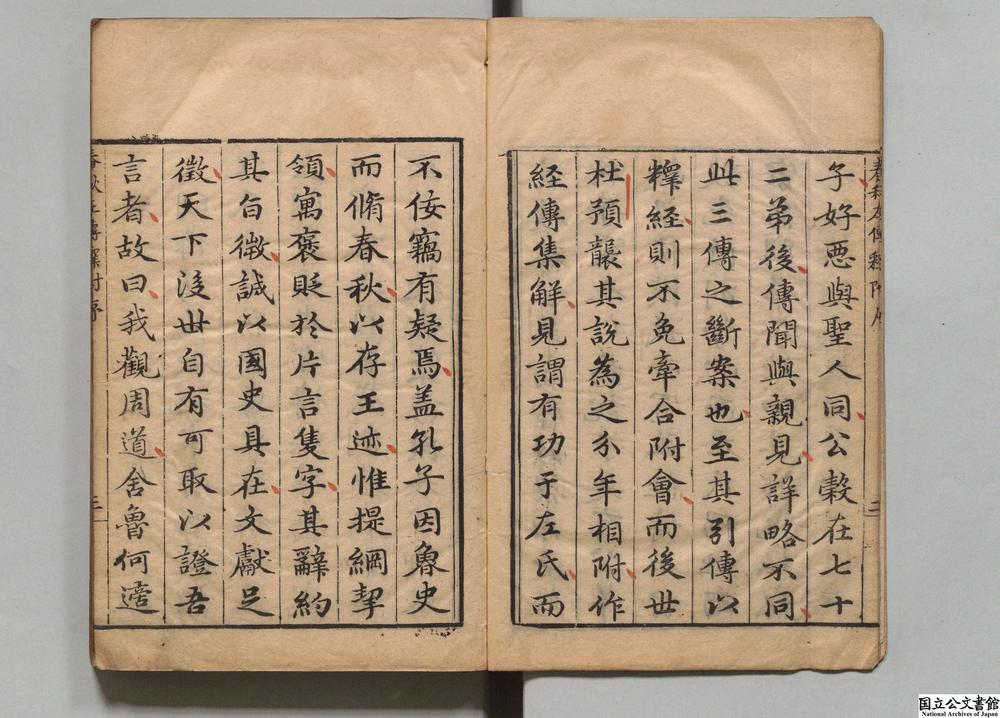 子好惡與聖人同公糓在七十
二弟後傳聞與親見詳略不同
此三傳之斷案也至其引傳以
釋經則不免牽合附會而後世
杜預襲其說為之分年相附作
經傳集解見謂有功于左氏而
不佞竊有疑焉盖孔子因魯史
而脩春秋以存王迹惟提綱挈
領寓褒貶於片言隻字其辭約
其旨微誠以國史具在文獻足
徵天下後世自有可取以證吾
言者故曰我觀周道舍魯何適
春秋左傳釋附序
三
国立公文書館
National Archives of Japan